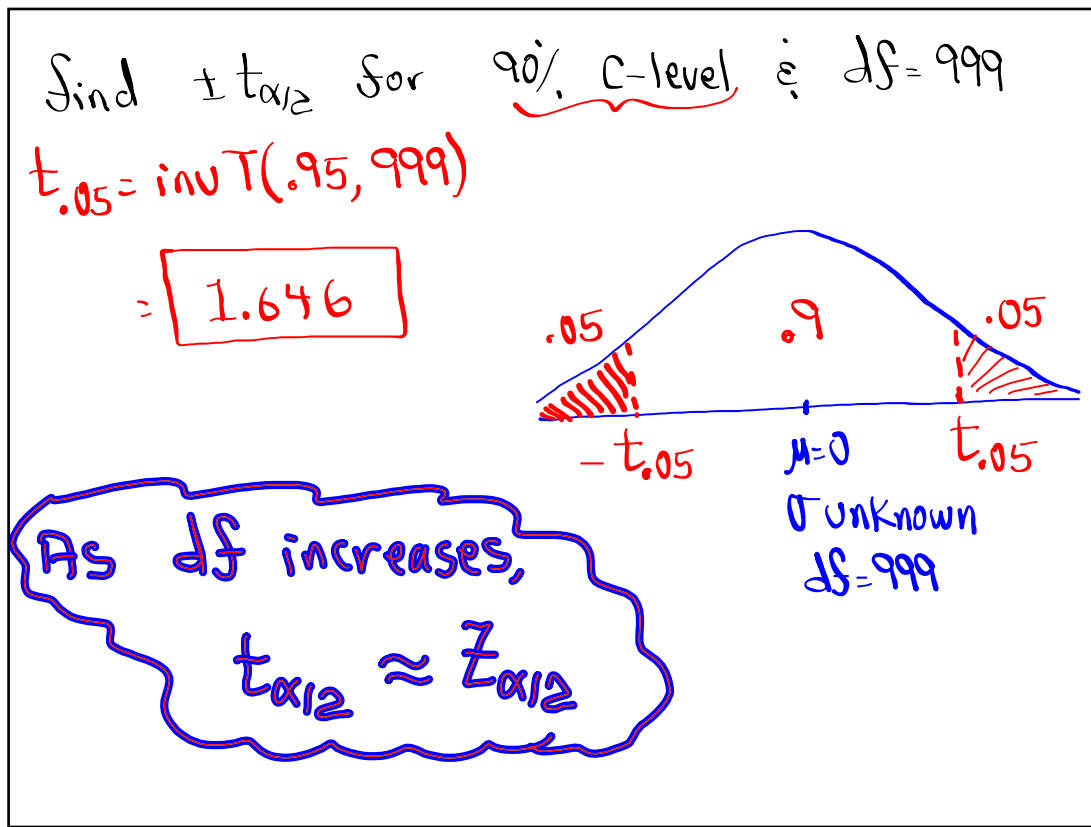 find ± tα/2 for 90% C-level & df = 999
t.05 = invT(.95, 999)
= 1.646
.05 .9 .05
- t.05 μ=0 t.05
σ unknown
df=999
As df increases,
tα/2 ≈ Zα/2